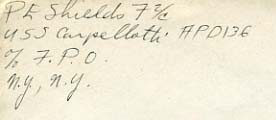 P E Shields F 2/c
USS Carpellotti APD136
℅ F.P.O.
N.Y., N.Y.